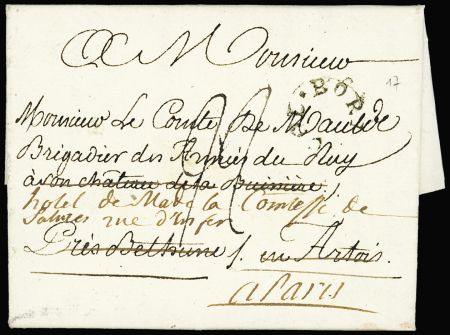 A Monsieur
17
Monsieur Le Comte De Maulde
Brigadier des Armées du Roy
à son château de la Buissière
hotel de Made la Comtesse de
rue d'Enfer
Près Bethune /. en Artois
a Paris